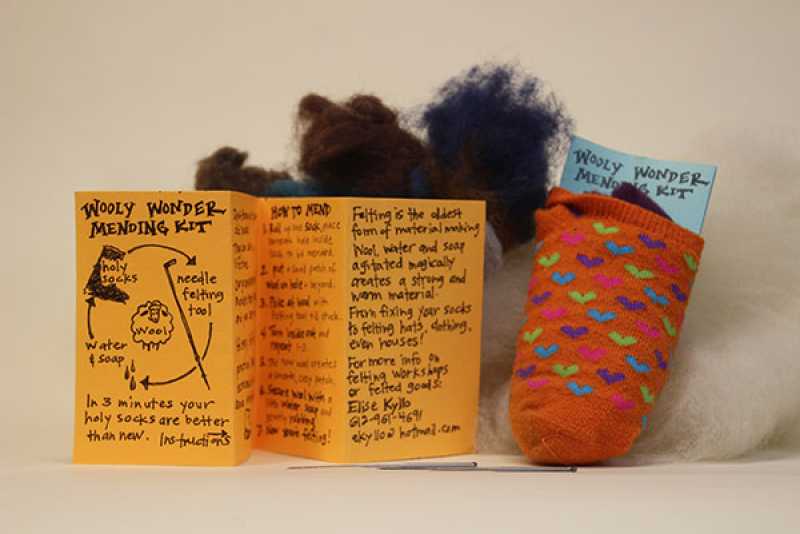 WOOLY WONDER
MENDING KIT
holy
socks
needle
felting
tool
Wool
water
& soap
In 3 minutes your
holy socks are better
than new. Instructions
HOW TO MEND
1. Roll up one sock, place
inside
sock to be mended.
2. Put a small patch of
wool on hole + beyond.
3. Poke at wool with
felting tool til stuck.
4. Turn inside out and
repeat 1-3.
5. The new wool creates
a smooth, cozy patch.
6. Secure wool with a
water soap and
7. Now you're felting!
Felting is the oldest
form of material making
Wool, water and soap
agitated magically
creates a strong and
warm material.
From fixing your socks
to felting hats, clothing,
even houses!
For more info on
felting workshops
or felted goods:
Elise Kyllo
612-961-4691
ekyllo@hotmail.com
WOOLY WONDER
MENDING KIT